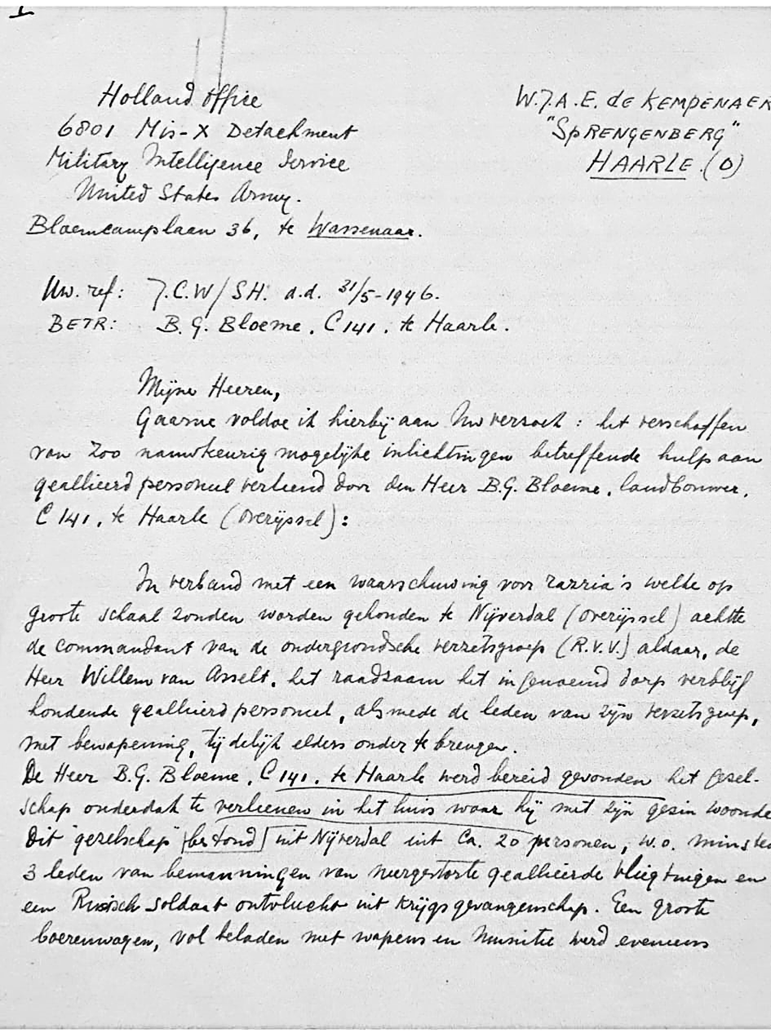 I
Holland Office
6801 Mis-X Detachment
Military Intelligence Service
United States Army.
Bloemcamplaan 36, te Wassenaar.
W.J.A.E. de KEMPENAER
"SPRENGENBERG"
HAARLE (O)
Uw. ref: J.C.W/SH. d.d. 31/5-1946.
BETR: B.G. Bloeme, C 141, te Haarle.
Mijne Heeren,
Gaarne voldoe ik hierbij aan Uw verzoek: het verschaffen
van zoo nauwkeurig mogelijke inlichtingen betreffende hulp aan
geallieerd personeel verleend door den Heer B.G. Bloeme, landbouwer,
C 141, te Haarle (Overijssel):
In verband met een waarschuwing voor razzia's welke op
groote schaal zouden worden gehouden te Nijverdal (Overijssel) achtte
de commandant van de ondergrondsche verzetsgroep (R.V.V.) aldaar, de
Heer Willem van Asselt, het raadzaam het in genoemd dorp verblijf
houdende geallieerd personeel, alsmede de leden van zijn verzetsgroep,
met bewapening, tijdelijk elders onder te brengen.
De Heer B.G. Bloeme, C 141, te Haarle werd bereid gevonden het gezel-
schap onderdak te verleenen in het huis waar hij met zijn gezin woonde
Dit "gezelschap" bestond uit Nijverdal uit ca. 20 personen, w.o. minste
3 leden van bemanningen van neergestorte geallieerde vliegtuigen en
een Russisch soldaat ontvlucht uit krijgsgevangenschap. Een groote
boerenwagen, vol beladen met wapens en munitie werd eveneens